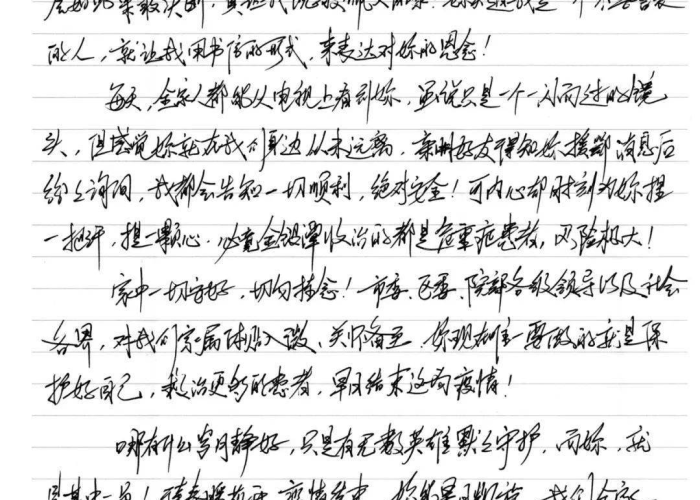 的人，就让我用书信的形式，来表达对你的思念！
每天，全家人都能从电视上看到你，虽说只是一个一闪而过的镜
头，但感觉你就在我们身边从未远离，亲朋好友得知你援鄂消息后
纷纷询问，我都会告知一切顺利，绝对安全！可内心却时刻为你捏
一把汗，提一颗心。必竟金银潭收治的都是危重症患者，风险极大！
家中一切安好，切勿挂念！市委、区委、院部各级领导以及社会
各界，对我们家属体贴入微、关怀备至，你现在唯一要做的就是保
护好自己，救治更多的患者，早日结束这场疫情！
哪有什么岁月静好，只是有无数英雄默默守护，而你，就
是其中一员！